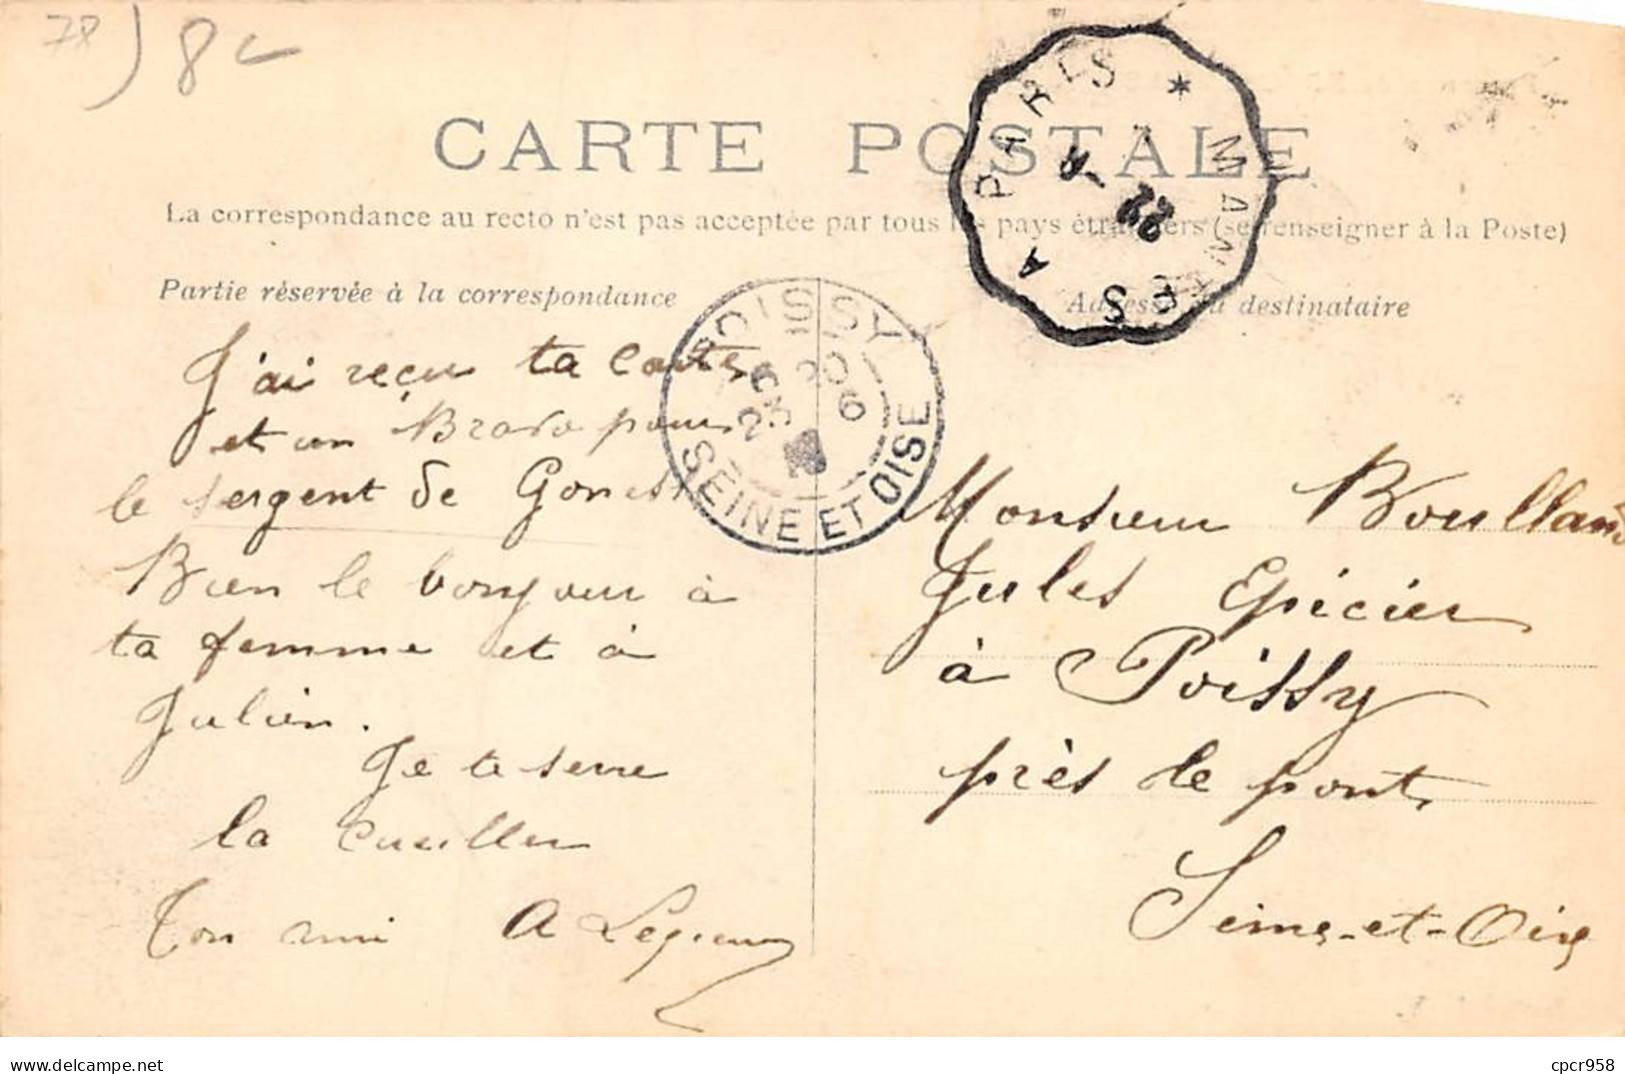 78
8
CARTE POSTALE
La correspondance au recto n'est pas acceptée par tous les pays étrangers (se renseigner à la Poste)
Partie réservée à la correspondance
Adresse du destinataire
MANTES A PARIS *
22
POISSY
20
23 6
SEINE ET OISE
J'ai reçu ta carte
et un Bravo pour
le sergent de
Bien le bonjour à
ta femme et à
Julien.
Je te serre
la cueiller
Ton ami A
Monsieur Boulland
Jules Epicier
à Poissy
près le pont
Seine-et-Oise
delcampe.net
cpcr958